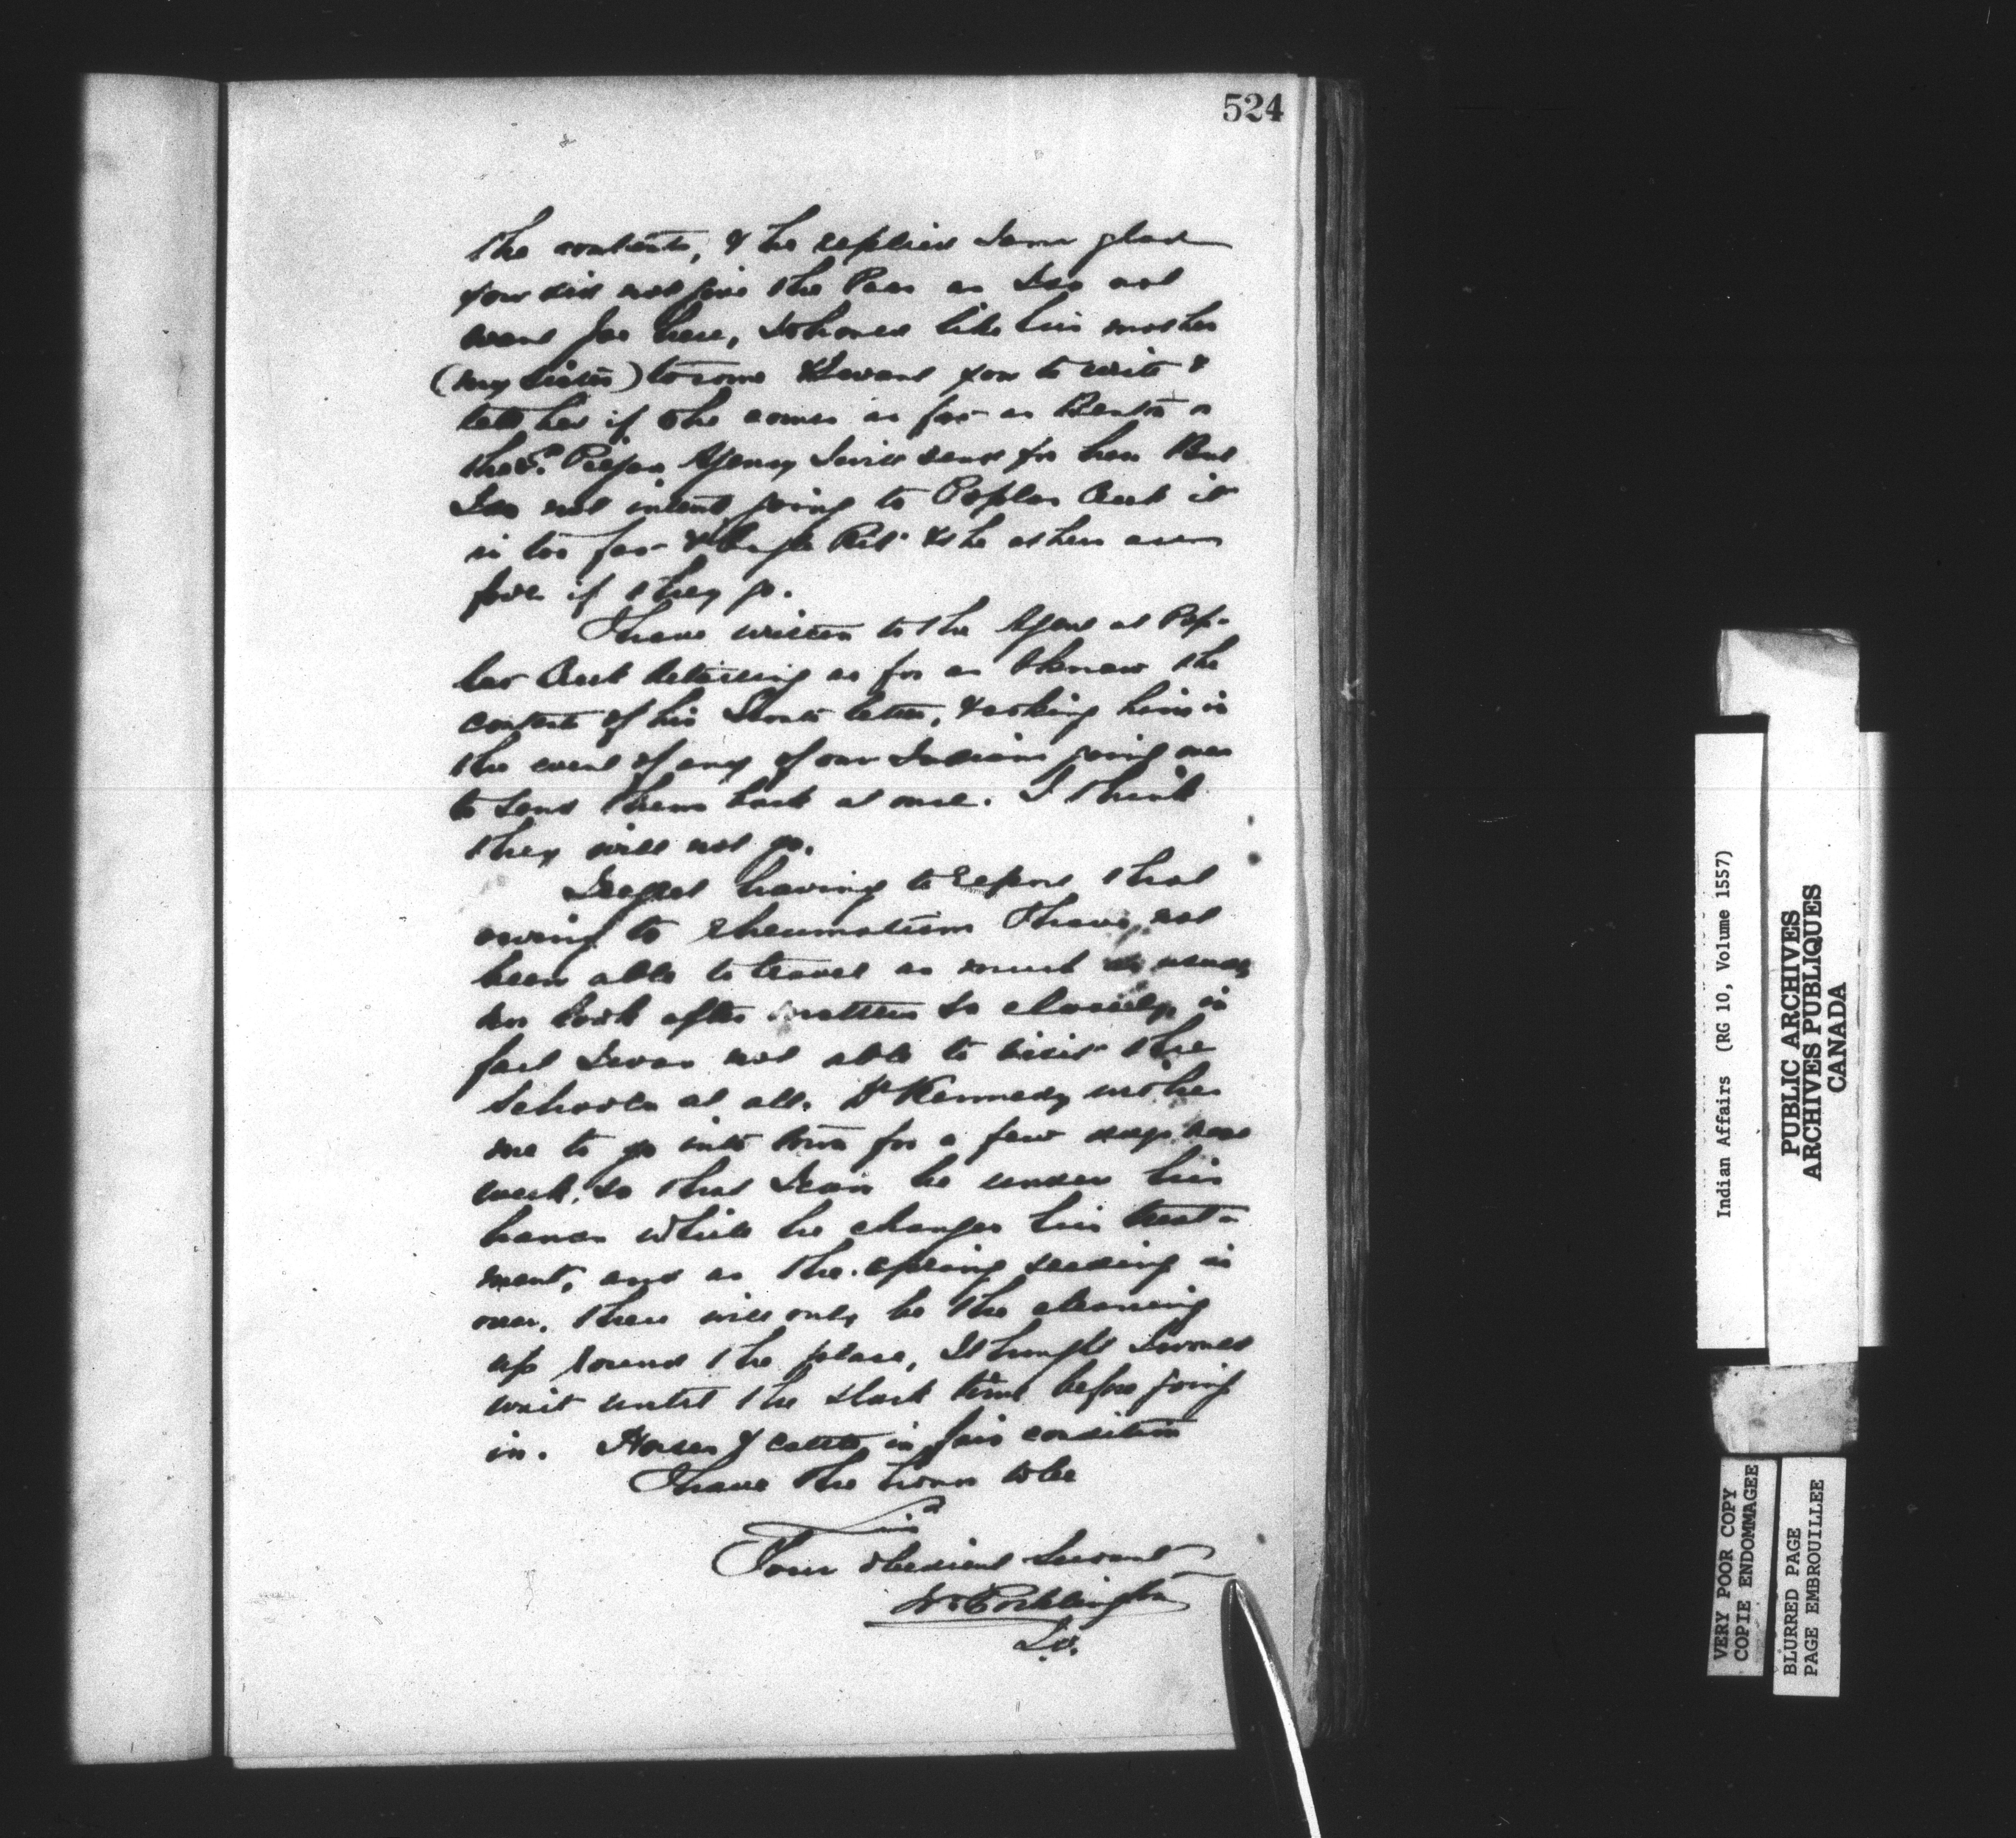 524
the contents, & he replied I am glad
you did not give the Pass as I do not
want Joe here, I should like his mother
(my sister) to come & I want you to write &
tell her if she comes as far as Benton or
the S. Piegan Agency I will send for her But
I do not intend going to Poplar Creek it
is too far & Eagle Rib & the others are
fools if they go.
I have written to the Agent at Pop-
lar Creek detailing as far as I knew the
contents of his letter, & asking him in
the event of any of our Indians going over
to send them back at once. I think
they will not go.
I regret having to report that
owing to rheumatism I have not
been able to travel as much as usual
nor look after matters so closely, in
fact I was not able to visit the
Schools at all. Dr Kennedy wishes
me to go into town for a few days next
week, so that I can be under his
hands while he changes his treat-
ment, and as the spring seeding is
over, there will only be the cleaning
up round the place, I thought I would
wait until the slack time before going
in. Horses & cattle in fair condition
I have the honor to be
Sir
Your obedient Servant
W Pocklington
Indian Affairs (RG 10, Volume 1557)
PUBLIC ARCHIVES
ARCHIVES PUBLIQUES
CANADA
VERY POOR COPY
COPIE ENDOMMAGEE
BLURRED PAGE
PAGE EMBROUILLEE